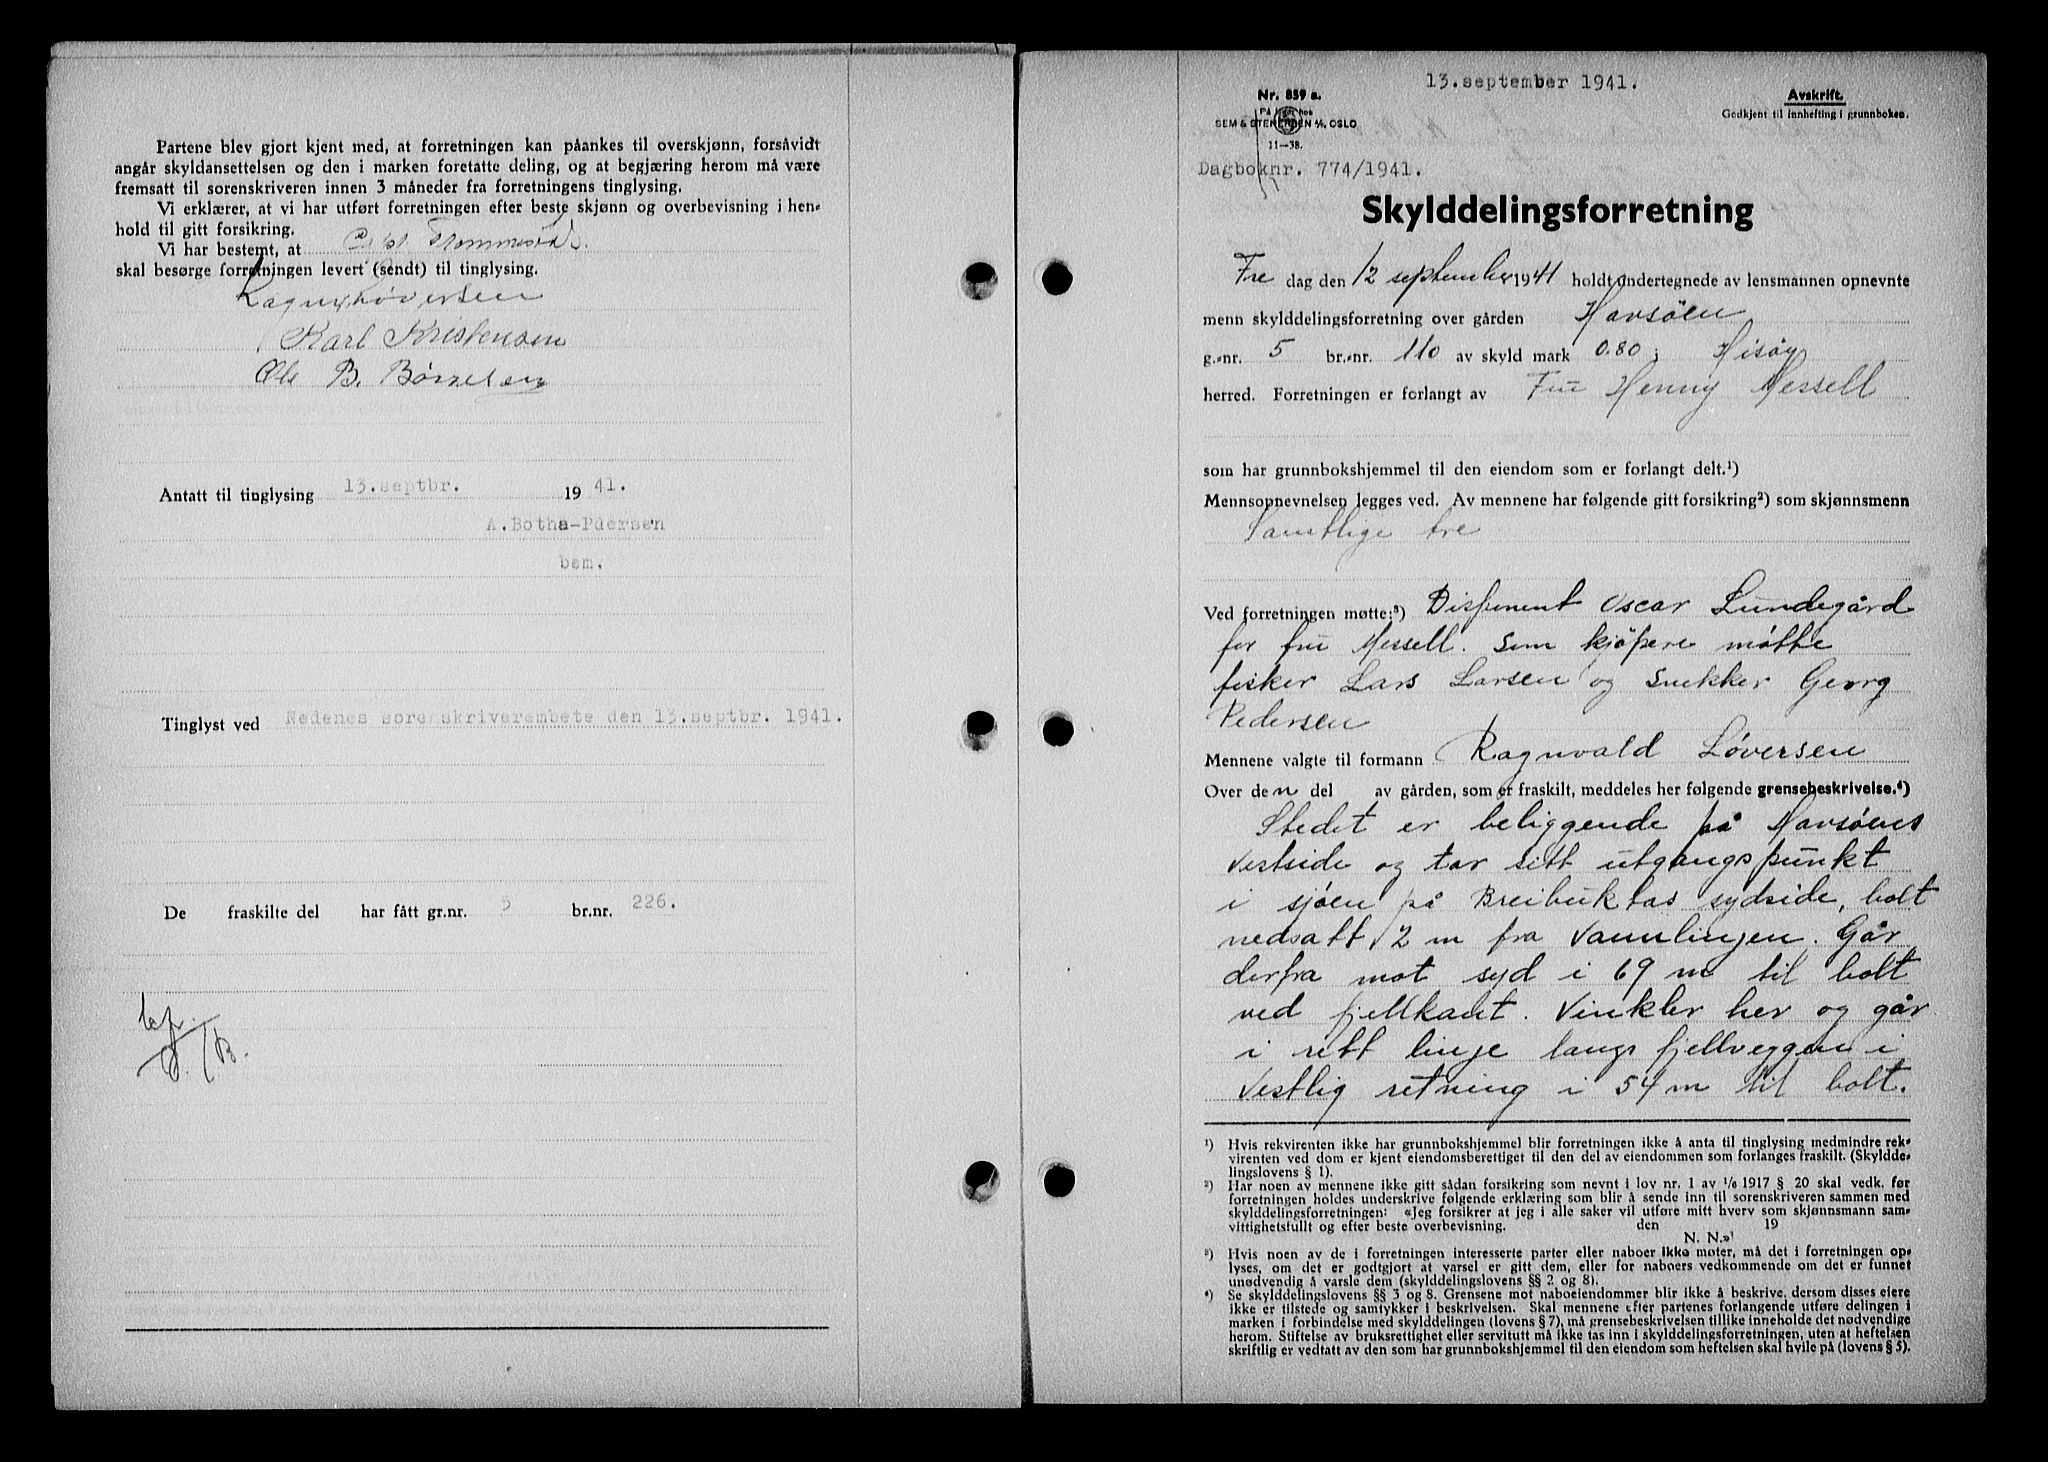 Partene blev gjort kjent med, at forretningen kan påankes til overskjønn, forsåvidt
angår skyldansettelsen og den i marken foretatte deling, og at begjæring herom må være
fremsatt til sorenskriveren innen 3 måneder fra forretningens tinglysing.
Vi erklærer, at vi har utført forretningen efter beste skjønn og overbevisning i hen-
hold til gitt forsikring.
Vi har bestemt, at
skal besørge forretningen levert (sendt) til tinglysing.
Løversen
Karl Kristensen
Ole B.
Antatt til tinglysing 13.septbr. 19 41.
A.Botha-Pdersen
bem.
Tinglyst ved Nedenes sorenskriverembete den 13.septbr. 1941.
De fraskilte del har fått gr.nr. 5 br.nr. 226.
13.september 1941.
Nr. 859 a.
På lager hos
SEM & STENERSEN A/S, OSLO
11—38.
Avskrift.
Godkjent til innhefting i grunnboken.
Dagboknr. 774/1941.
Skylddelingsforretning
Fre dag den 12 september 1941 holdt undertegnede av lensmannen opnevnte
menn skylddelingsforretning over gården Havsöen
g.-nr. 5 br.-nr. 110 av skyld mark 0.80 i Hisöy
herred. Forretningen er forlangt av Fru Henny Messell
som har grunnbokshjemmel til den eiendom som er forlangt delt.¹)
Mennsopnevnelsen legges ved. Av mennene har følgende gitt forsikring²) som skjønnsmenn
Samtlige tre
Ved forretningen møtte:³) Disponent Oscar Lundegård
for fru Messell. Som kjöpere møtte
fisker Lars Larsen og Snekker Georg
Pedersen
Mennene valgte til formann Ragnvald Løversen
Over den del av gården, som er fraskilt, meddeles her følgende grensebeskrivelse.⁴)
Stedet er beliggende på Havsöens
Vestside og tar sitt utgangspunkt
i sjøen på Breibuktas sydside, bolt
nedsatt 2 m fra Vannlinjen. Går
derfra mot syd i 69 m til bolt
ved fjellkant. Vinkler her og går
i rett linje langs fjellveggen i
Vestlig retning i 54 m til bolt.
¹) Hvis rekvirenten ikke har grunnbokshjemmel blir forretningen ikke å anta til tinglysing medmindre rek-
virenten ved dom er kjent eiendomsberettiget til den del av eiendommen som forlanges fraskilt. (Skyldde-
lingslovens § 1).
²) Har noen av mennene ikke gitt sådan forsikring som nevnt i lov nr. 1 av 1/6 1917 § 20 skal vedk. før
forretningen holdes underskrive følgende erklæring som blir å sende inn til sorenskriveren sammen med
skylddelingsforretningen: «Jeg forsikrer at jeg i alle saker vil utføre mitt hverv som skjønnsmann sam-
vittighetsfullt og efter beste overbevisning. den 19
N. N.»
³) Hvis noen av de i forretningen interesserte parter eller naboer ikke møter, må det i forretningen op-
lyses, om det er godtgjort at varsel er gitt dem, eller for naboers vedkommende om det er funnet
unødvendig å varsle dem (skylddelingslovens §§ 2 og 8).
⁴) Se skylddelingslovens §§ 3 og 8. Grensene mot naboeiendommer blir ikke å beskrive, dersom disses eiere
ikke er tilstede og samtykker i beskrivelsen. Skal mennene efter partenes forlangende utføre delingen i
marken i forbindelse med skylddelingen (lovens § 7), må grensebeskrivelsen tillike inneholde det nødvendige
herom. Stiftelse av bruksrettighet eller servitutt må ikke tas inn i skylddelingsforretningen, uten at heftelsen
skriftlig er vedtatt av den som har grunnbokshjemmel til den eiendom som heftelsen skal hvile på (lovens § 5).